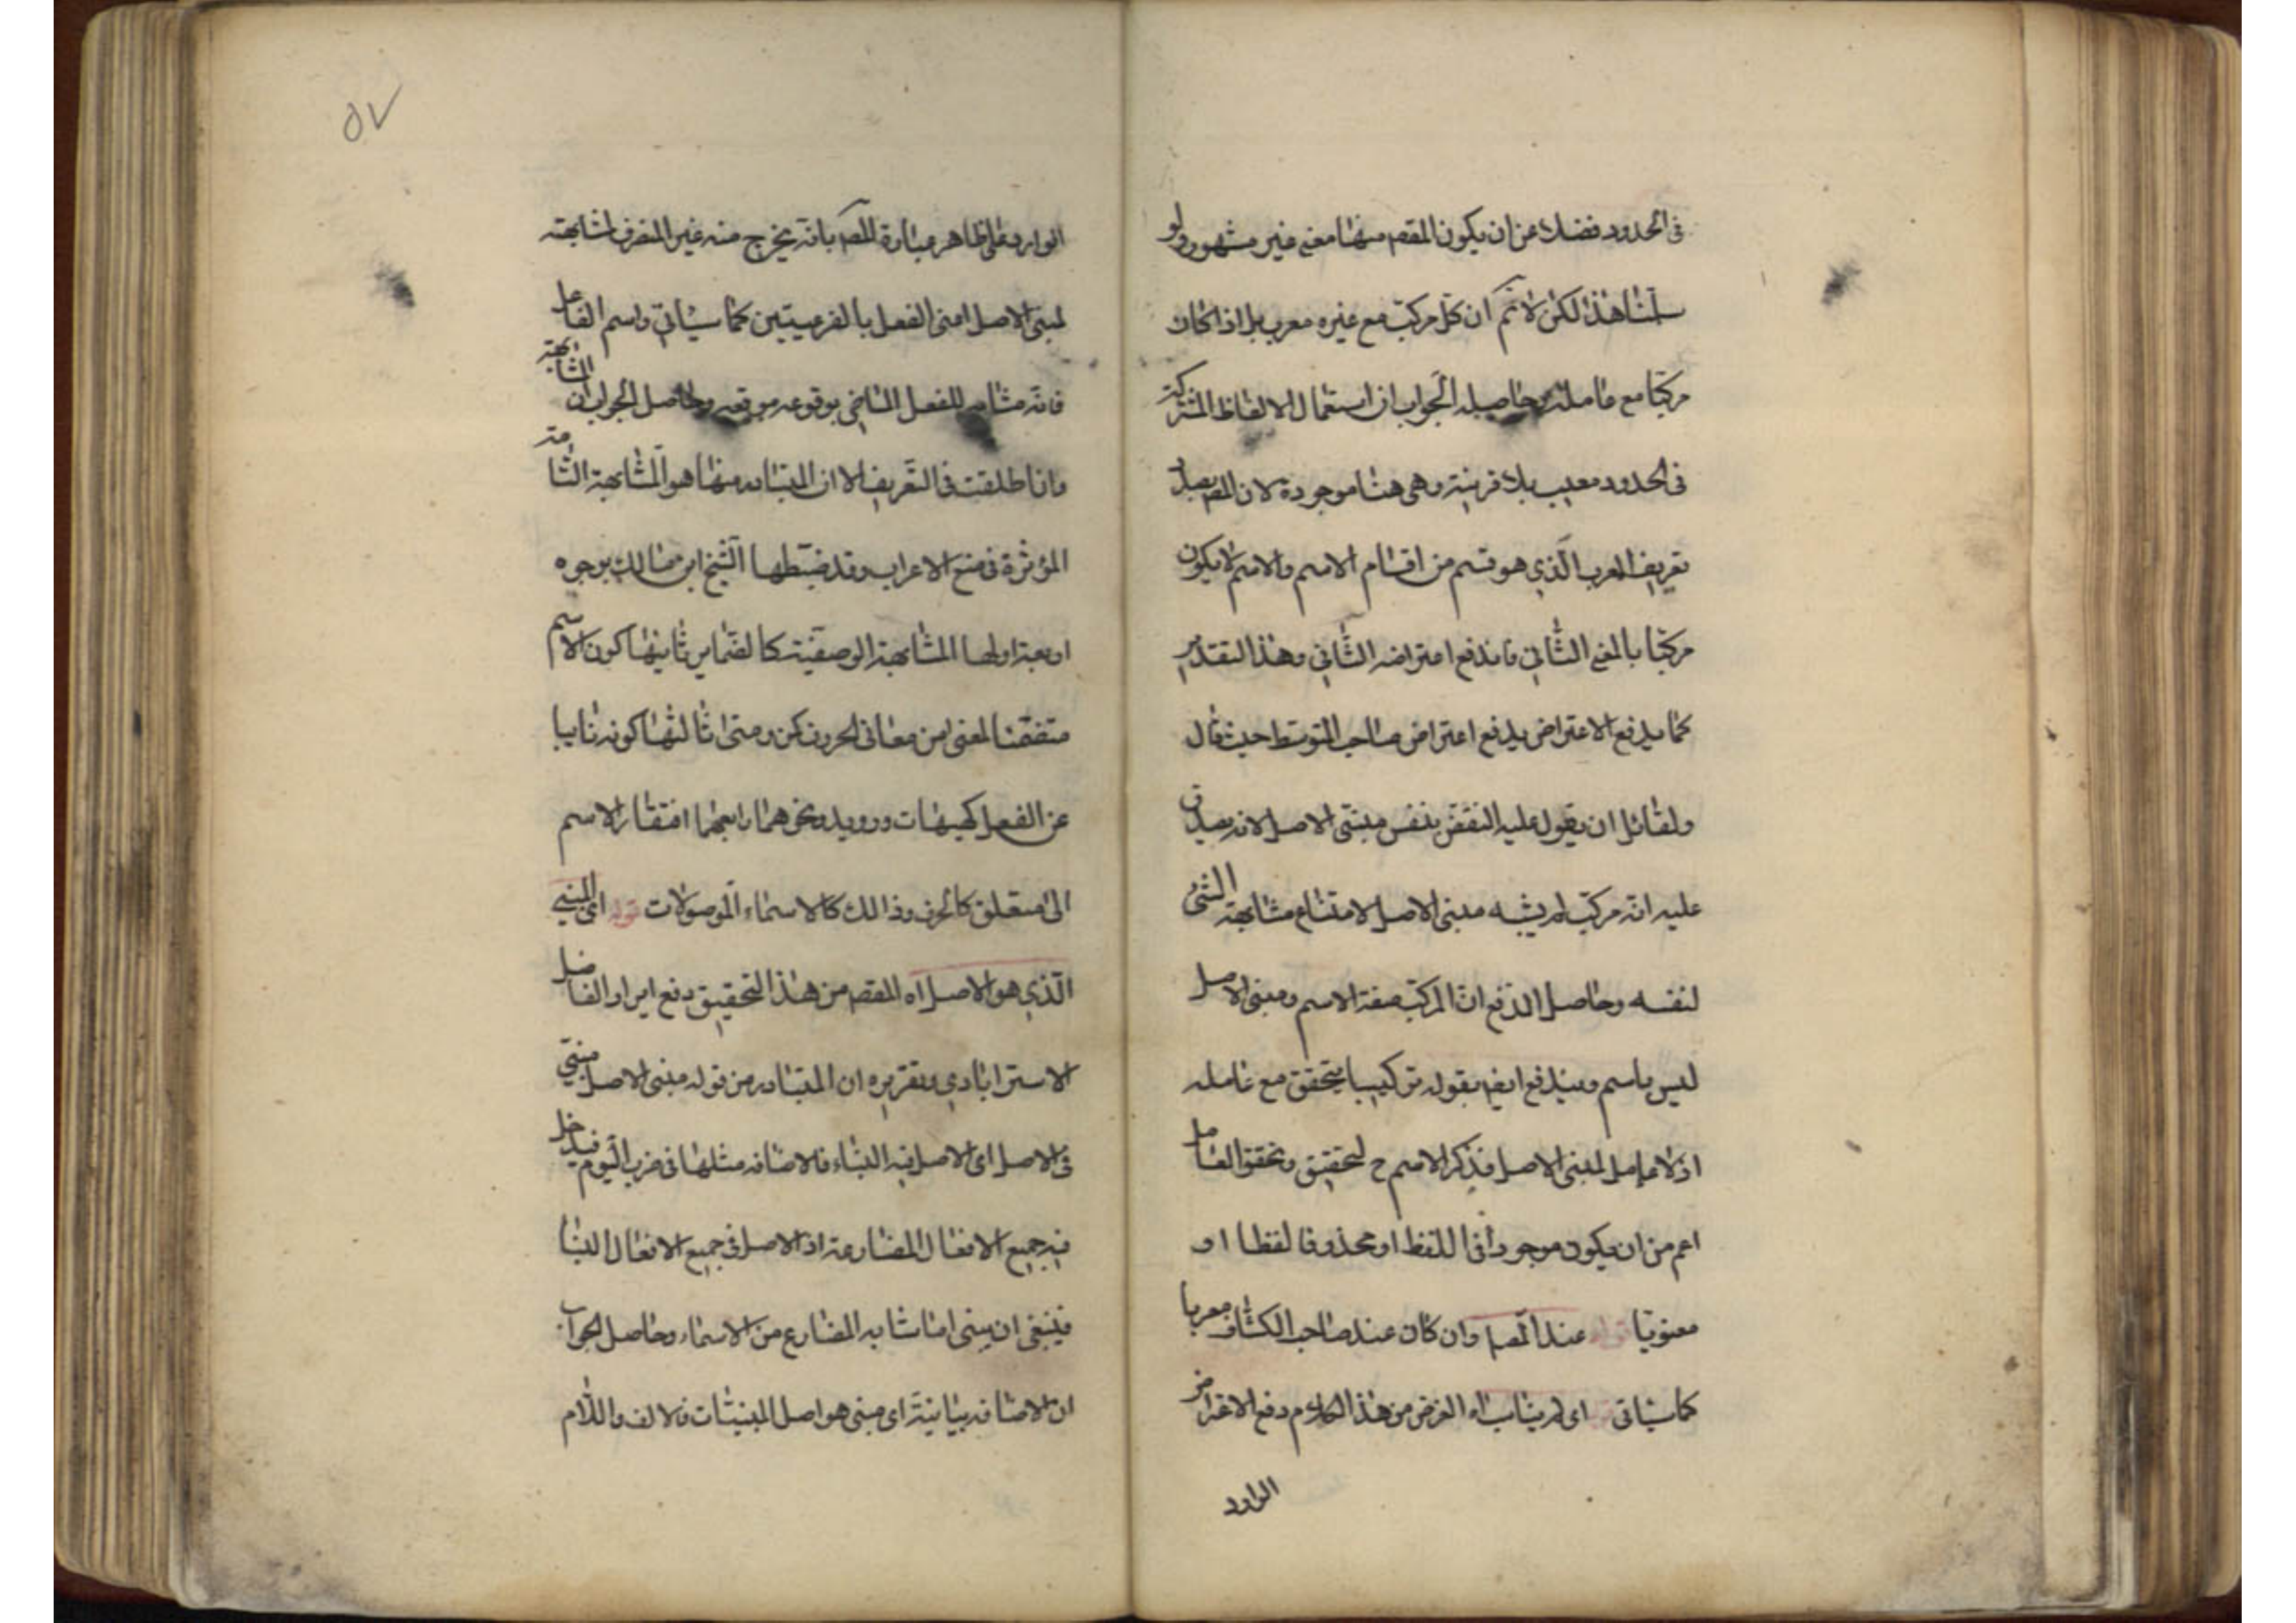 فى الحدود فضلا عن ان يكون المقصم منها معنى غير مشهور ولو
سلمنا هذا لكن لا نم ان كل مركب مع غيره معرب بل اذا كان
مركبا مع عامله وحاصله الجواب ان استعمال الالفاظ المشتركة
فى الحدود معيب بلا قرينة وهى هنا موجودة لان المصم بصدد
تعريف المعرب الذي هو قسم من اقسام الاسم والاسم لا يكون
مركبا بالمعنى الثاني فاندفع اعتراضه الثاني وهذا التقدير
كما يدفع الاعتراض يدفع اعتراض صاحب المتوسط حيث قال
ولقائل ان يقول عليه النقض بنفس مبنى الاصل لانه يصدق
عليه انه مركب لم يشبه مبنى الاصل لامتناع مشابهة الشئ
لنفسه وحاصل الدفع ان المركب صفة الاسم ومبنى الاصل
ليس باسم ويندفع ايضا بقوله تركيبا يتحقق مع عامله
اذ لا عامل لمبنى الاصل فذكر الاسم ح لتحقيق وتحقق العامل
اعم من ان يكون موجودا فى اللفظ او محذوفا لفظا او
معنويا قوله عند المصم وان كان عند صاحب الكشاف معربا
كما سياتى اى لم يناسب الغرض من هذا الكلام دفع الاعتراض
الوارد
٥٧
الوارد على ظاهر عبارة المصم بانه يخرج منه غير المنصرف لمشابهته
لمبنى الاصل اعنى الفعل بالفرعيتين كما سياتي واسم الفاعل
فانه مشابه للفعل الماضي بوقوعه موقعه وحاصل الجواب ان المشابهة
وان اطلقت فى التعريف الا ان المتبادر منها هو المشابهة التامة
المؤثرة فى منع الاعراب وقد ضبطها الشيخ ابن مالك بوجوه
اربعة اولها المشابهة الوضعية كالضماير ثانيها كون الاسم
متضمنا لمعنى من معانى الحروف كمن ومتى ثالثها كونه نايبا
عن الفعل كهيهات ورويد ونحوهما رابعها افتقار الاسم
الى متعلق كالحرف وذالك كالاسماء الموصولات قوله اى المبنى
الذي هو الاصل اه المقصم من هذا التحقيق دفع ايراد الفاضل
الاسترابادي وتقريره ان المتبادر من قوله مبنى الاصل مبنى
فى الاصل اى الاصل فيه البناء فالاضافه مثلها فى ضرب اليوم فيدخل
فيه جميع الافعال المضارعة اذ الاصل فى جميع الافعال البنا
فينبغى ان يبنى ما شابه المضارع من الاسماء وحاصل الجواب
ان الاضافه بيانية اى مبنى هو اصل المبنيات فالالف واللام